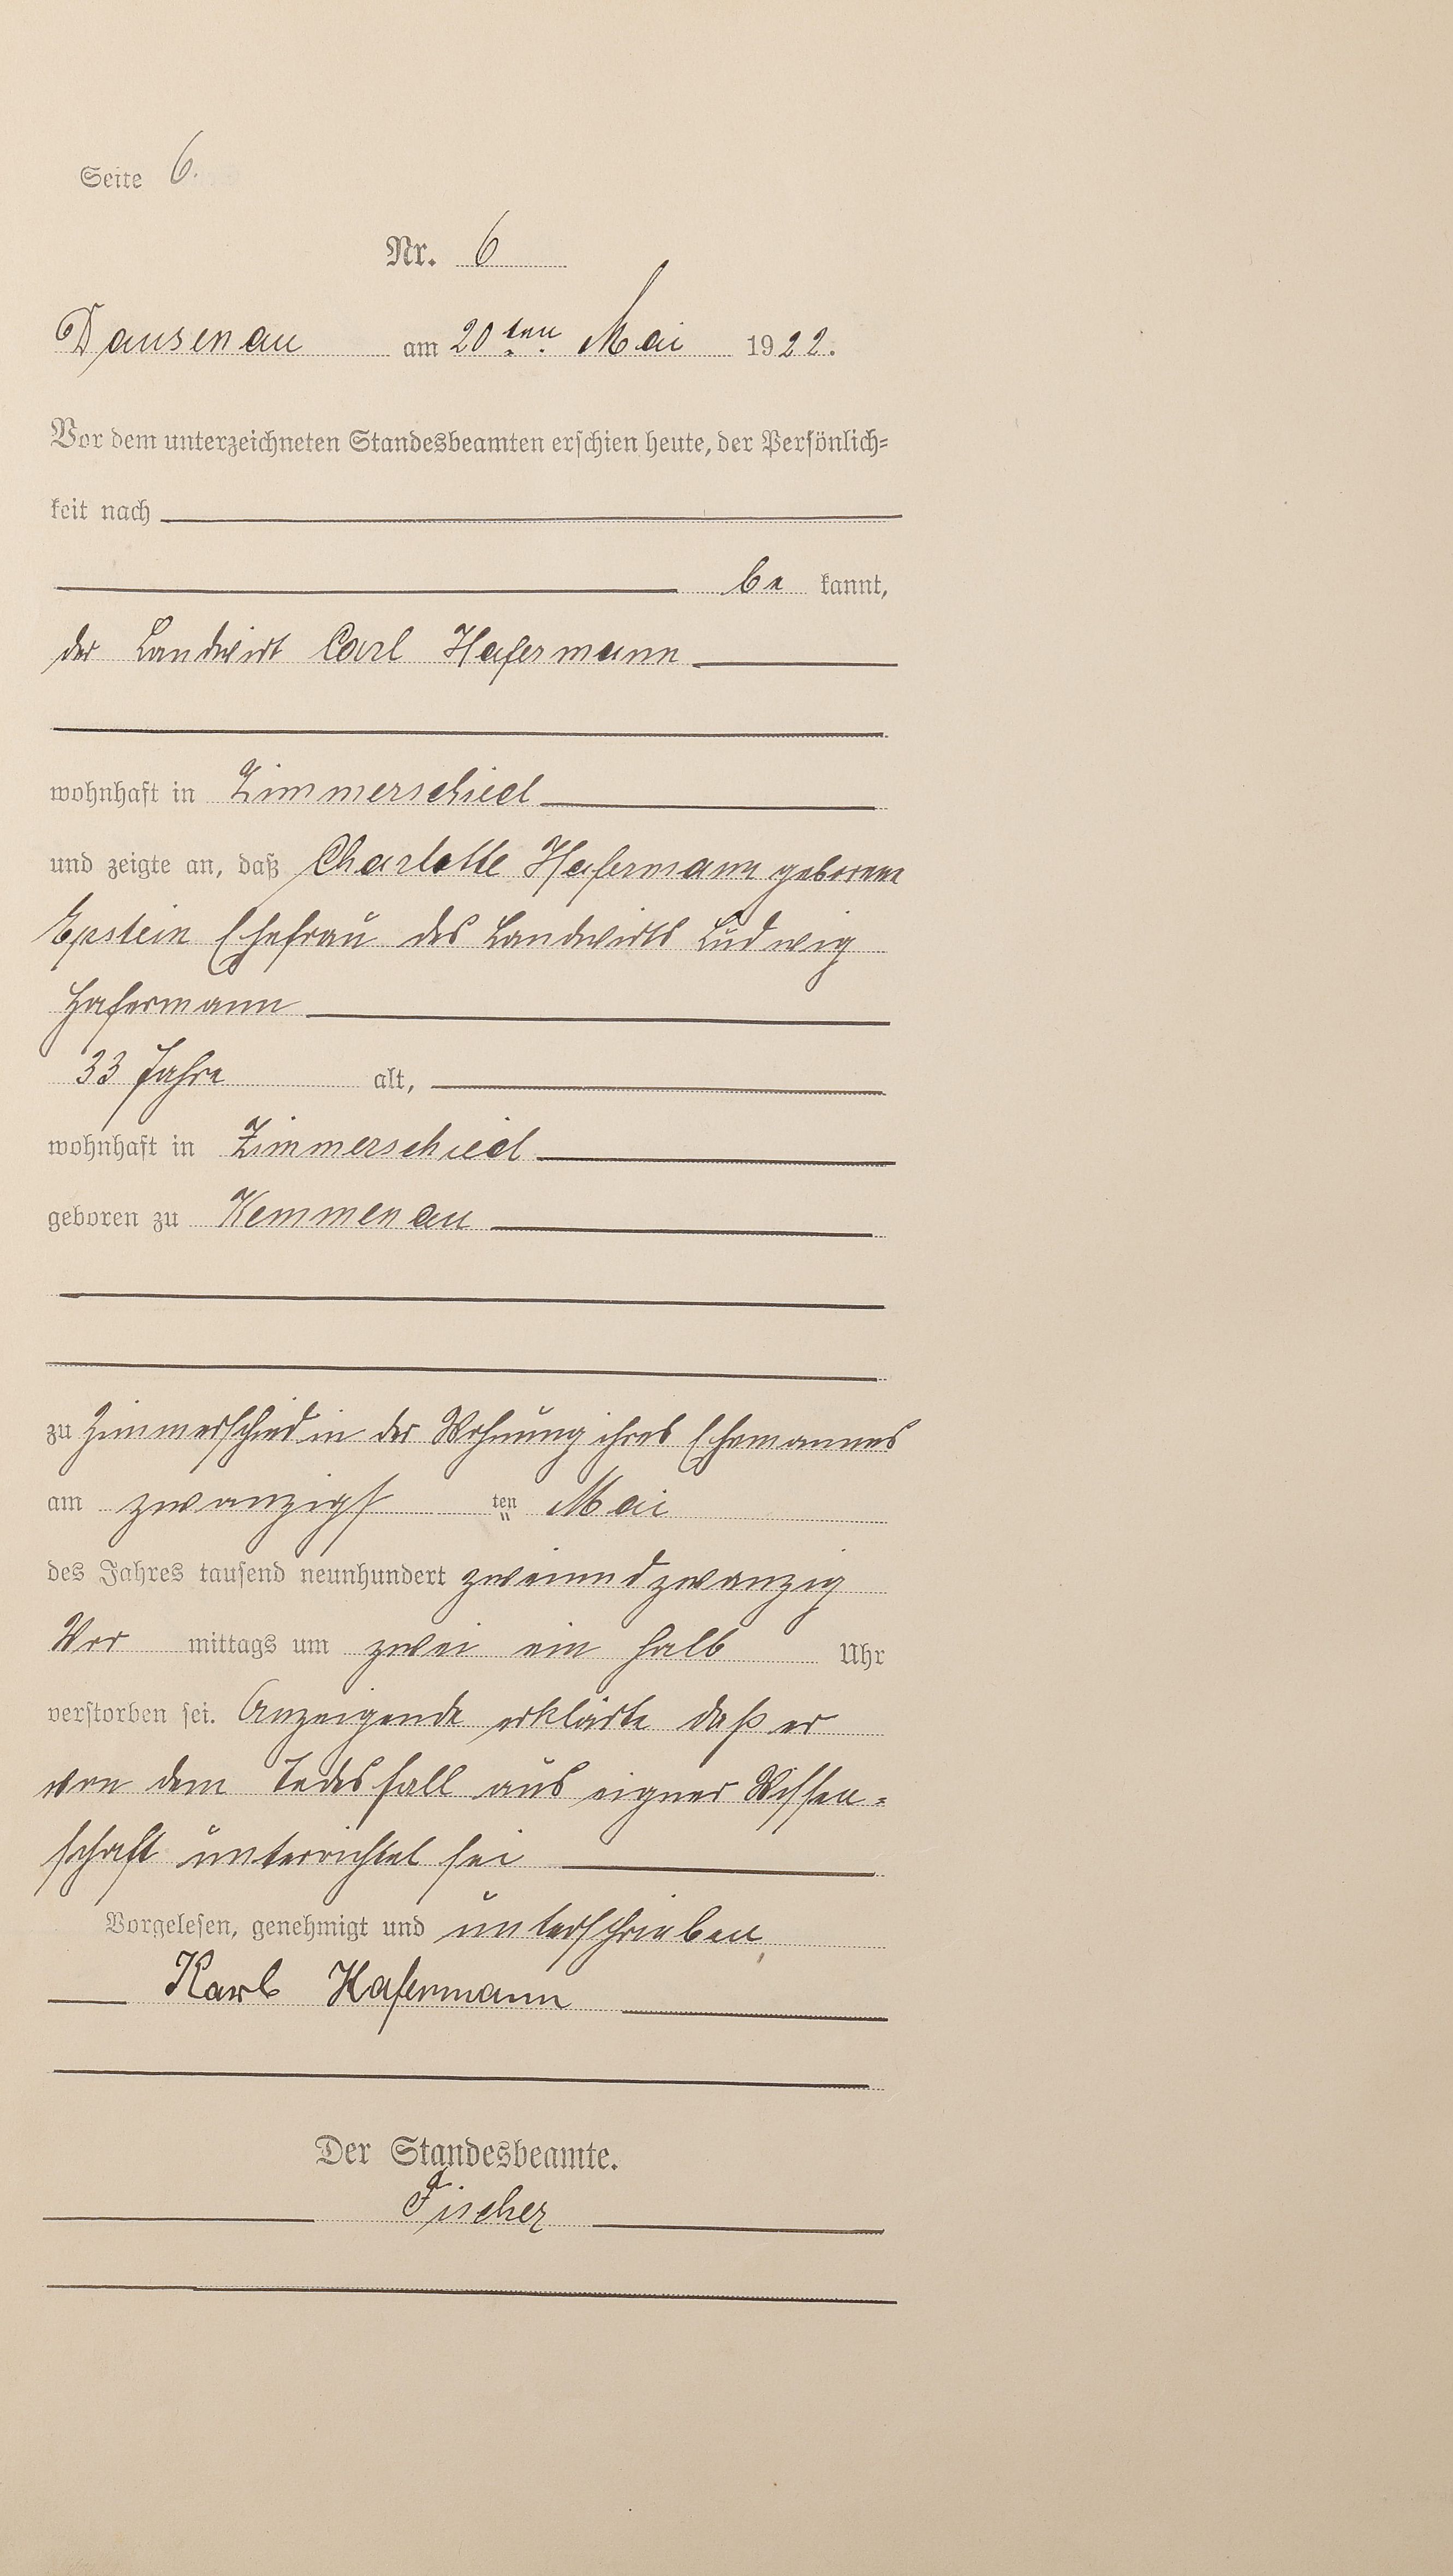 Seite 6.
Nr. 6
Dausenau am 20ten Mai 1922.
Vor dem unterzeichneten Standesbeamten erschien heute, der Persönlich-
keit nach
be kannt,
der Landwirt Carl Hafermann
wohnhaft in Zimmerschied
und zeigte an, daß Charlotte Hafermann geborene
Epstein Ehefrau des Landwirts Ludwig
Hafermann
33 Jahre alt,
wohnhaft in Zimmerschied
geboren zu Kemmenau
zu Zimmerschied in der Wohnung ihres Ehemannes
am zwanzigsten Mai
des Jahres tausend neunhundert zweiundzwanzig
Vor mittags um zwei ein halb Uhr
verstorben sei. Anzeigende erklärte daß er
von dem Todesfall aus eigner Wissen-
schaft unterrichtet sei
Vorgelesen, genehmigt und unterschrieben
Karl Hafermann
Der Standesbeamte.
Fischer